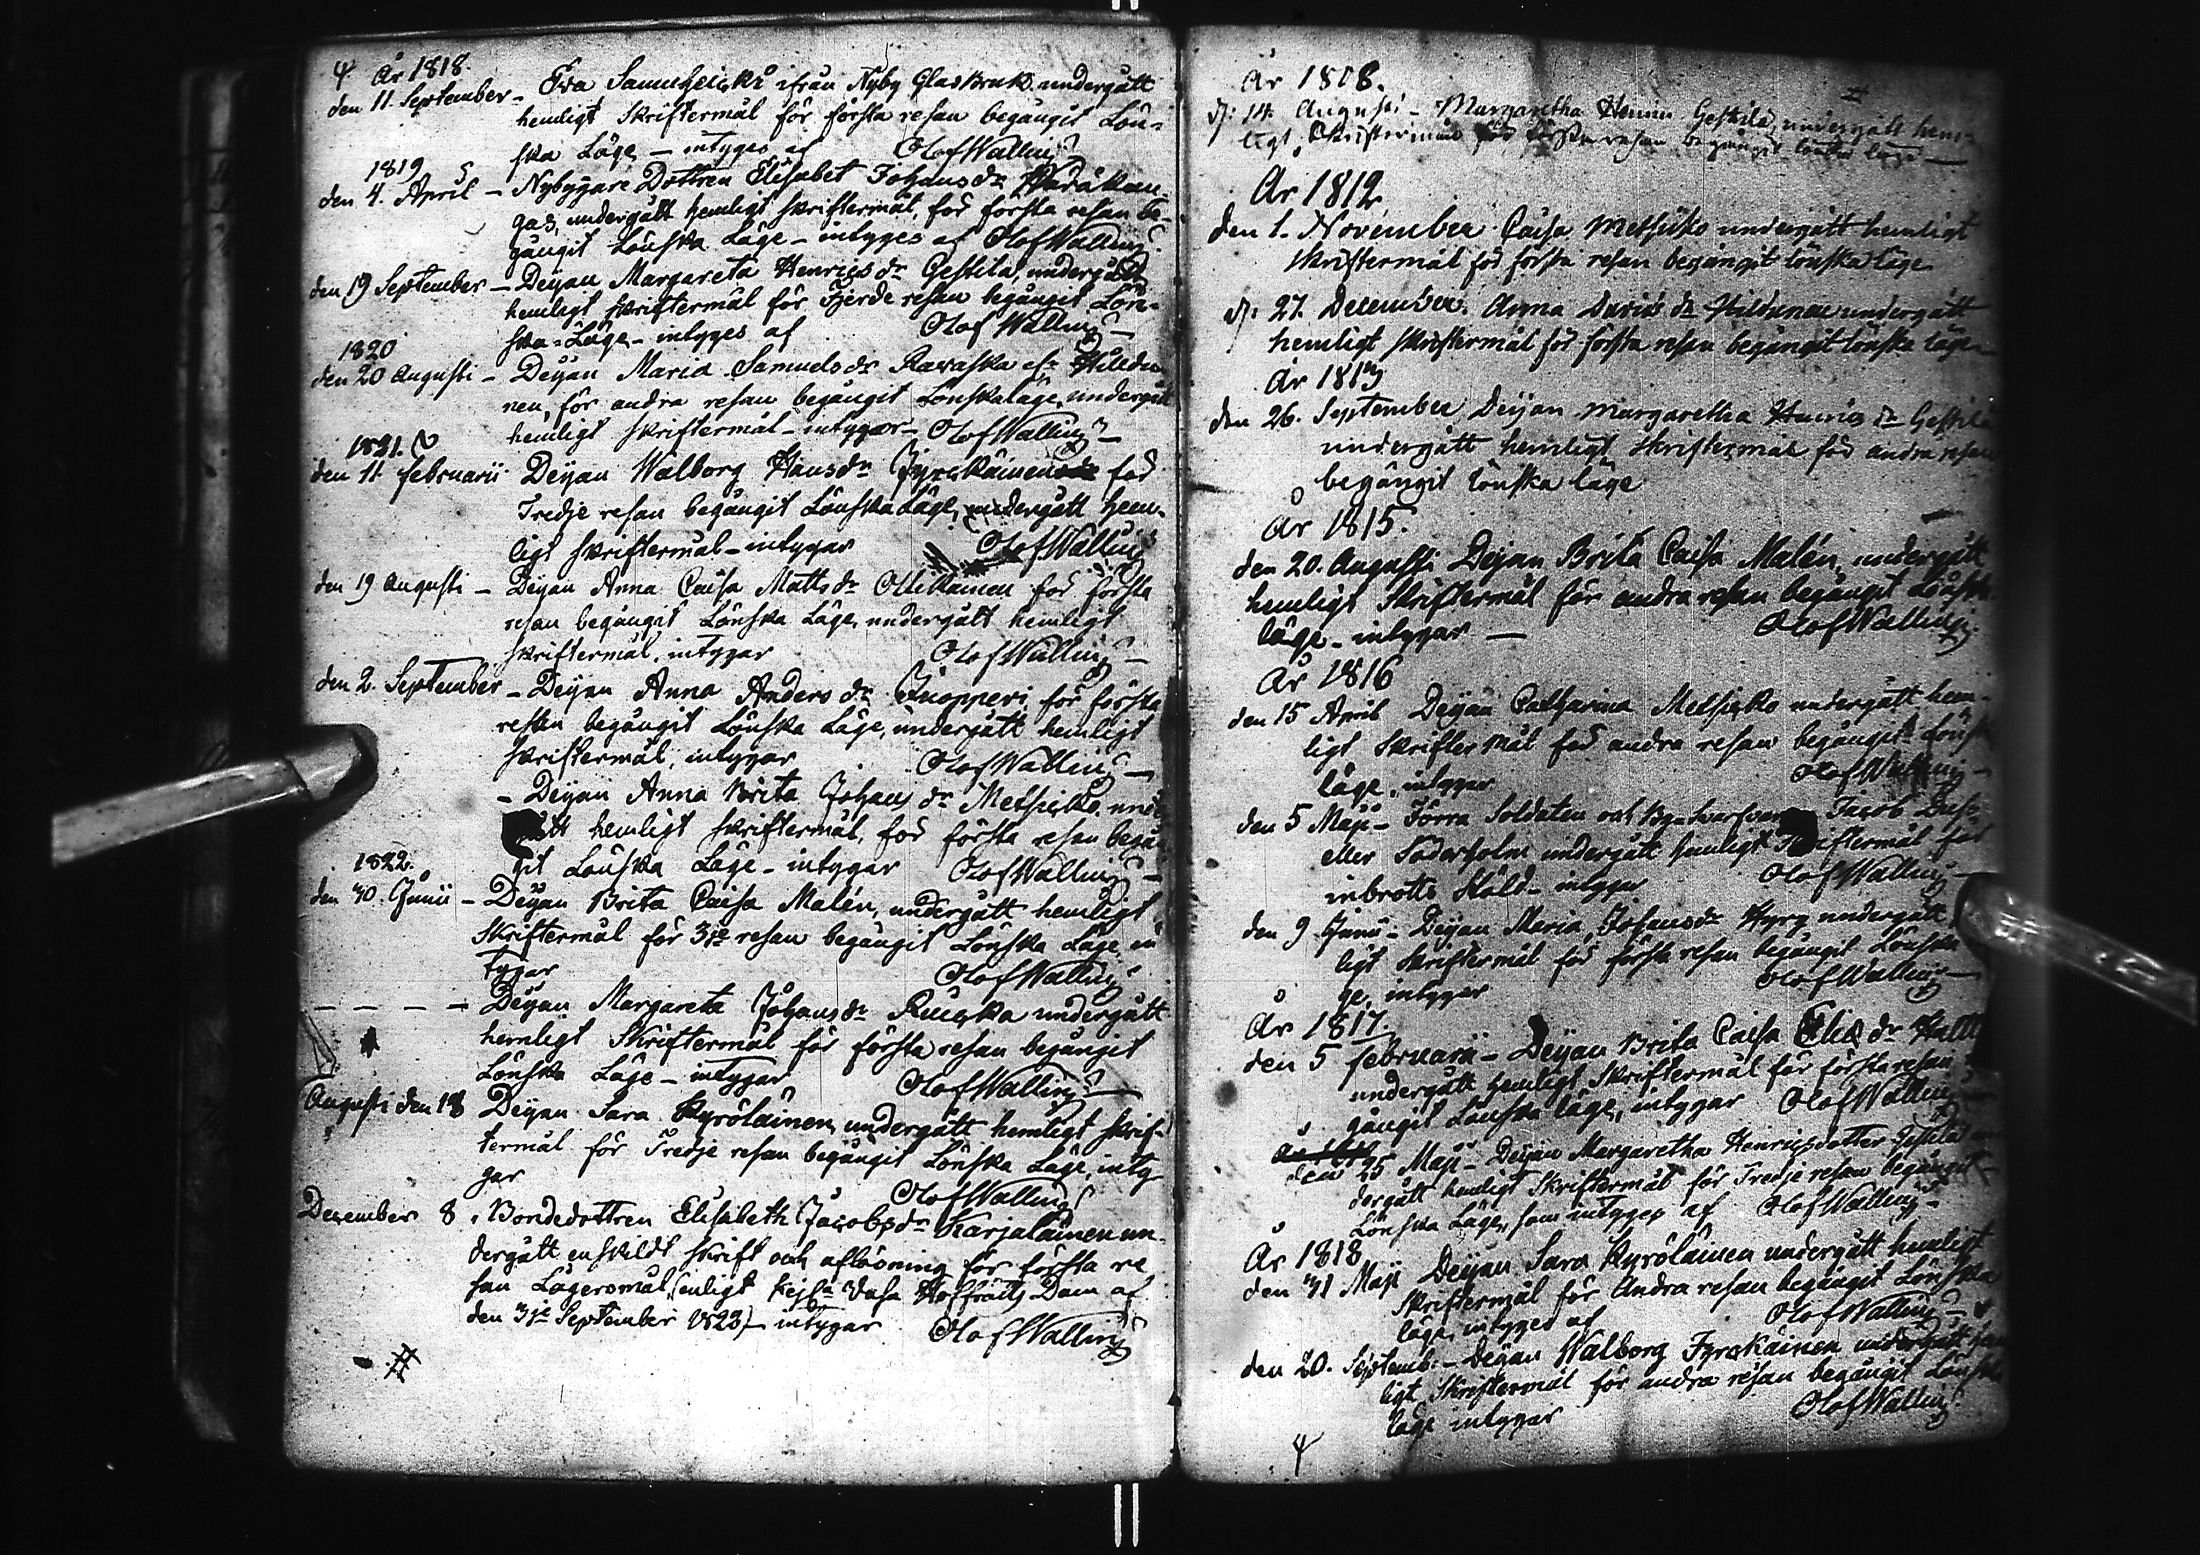 År 1818.
den 11. September - Eva Samuelsickö ifrån Nyby Glasbruk undergått
hemligt skriftermål för första resan begångit Lön-
ska Läge - intyges af Olof Walling
1819
den 4. April - Nybyggare Dottren Elisabet Johansdr
gas, undergått hemligt skriftermål, för första resan be-
gångit Lönska Läge - intyges af Olof Walling
den 19 September - Deijan Margareta Henricsdr Gestila, undergått
hemligt skriftermål för Fjerde resan begångit Lön-
ska-Läge - intyges af Olof Walling
1820
den 20 Augusti - Deijan Maria Samuelsdr Rawaska
nen, för andra resan begångit Lönskaläge, undergått
hemligt skriftermål - intygar - Olof Walling
1821.
den 11. februarii Deijan Walborg Hansdr Jyrckäinen för
Tredje resan begångit Lönska Läge, undergått hem-
ligt skriftermål - intygar Olof Walling
den 19 Augusti - Deijan Anna Caisa Mattsdr Ollikainen för första
resan begångit Lönska Läge, undergått hemligt
skriftermål, intygar Olof Walling
den 2. September - Deijan Anna Andersdr Juopperi, för första
resan begångit Lönska Läge, undergått hemligt
skriftermål, intygar Olof Walling
- Deijan Anna Brita Johansdr Metsicko, und
ått hemligt skriftermål, för första resan begån
git Lönska Läge - intygar Olof Walling
1822.
den 30. Junii - Deijan Brita Caisa Malén, undergått hemligt
skriftermål för 3je resan begångit Lönska Läge, in
tygar Olof Walling
- - - - Deijan Margareta Johansdr Ruicka undergått
hemligt skriftermål för första resan begångit
Lönska Läge - intygar Olof Walling
Augusti den 18 Deijan Sara Kyröläinen, undergått hemligt skrif-
termål för Tredje resan begångit Lönska Läge, inty
gar Olof Walling
December 8, Bondedottren Elisabeth Jacobsdr Karjalainen un-
dergått enskildt skrift och aflösning för första re
san Lägersmål, (enligt Kejs. Vasa Hoffrätts Dom af
den 3je September 1823) - intygar Olof Walling
År 1808.
d: 14. Augusti - Margaretha Henrics Gestila, undergått hem-
ligt Skriftermål för första resan begångit lönska läge -
År 1812
den 1. November Caisa Metsicko undergått hemligt
skriftermål för första resan begångit lönska läge
d: 27. December. Anna Davidsdr Hildunen undergått
hemligt skriftermål för första resan begångit lönska läge
År 1813
den 26. September Deijan Margaretha Henricsdr Gestila
undergått hemligt skriftermål för andra resan
begångit lönska läge
År 1815.
den 20. Augusti Deijan Brita Caisa Malén, undergått
hemligt Skriftermål för andra resan begångit Lönska
läge - intygar - Olof Walling
År 1816
den 15 April Deijan Catharina Metsicko undergått hem-
ligt Skriftermål för andra resan begångit lönsk
läge, intygar Olof Walling
den 5 Maji - Förra Soldaten och Jacob
eller Söderholm undergått hemligt Skriftermål för
inbrotts Stöld - intygar Olof Walling
den 9 Junii - Deijan Maria Johansdr Hyry undergått
ligt skriftermål för första resan begångit Lönska
ge, intygar Olof Walling
År 1817.
den 5 februarii - Deijan Brita Caisa Eliedr
undergått hemligt Skriftermål för första resan
gångit Lönska läge, intygar Olof Walling
den 25 Maji - Deijan Margaretha Henricsdotter Gestila un
dergått hemligt skriftermål för Tredje resan begångit
Lönska Läge, som intyges af Olof Walling
År 1818
den 31 Maji Deijan Sara Kyröläinen undergått hemligt
skriftermål för Andra resan begångit Lönska
läge, intyges af Olof Walling
den 20. Septemb: - Deijan Walborg Jyrckäinen undergått hem
ligt Skriftermål för andra resan begångit Lönska
läge intygar Olof Walling